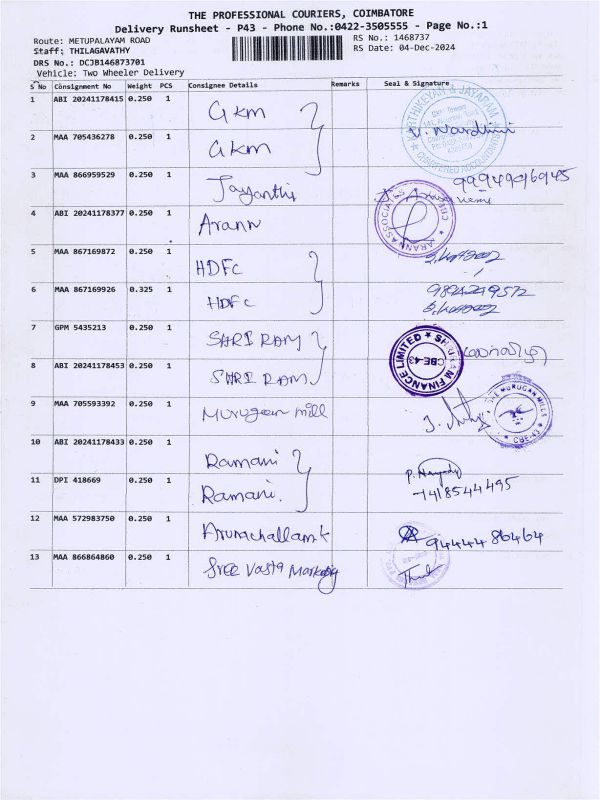 THE PROFESSIONAL COURIERS, COIMBATORE
Delivery Runsheet - P43 - Phone No.:0422-3505555 - Page No.:1
Route: METUPALAYAM ROAD RS No.: 1468737
Staff: THILAGAVATHY RS Date: 04-Dec-2024
DRS No.: DCJB146873701
Vehicle: Two Wheeler Delivery
S No Consignment No Weight PCS Consignee Details Remarks Seal & Signature
1 ABI 20241178415 0.250 1 GKM
2 MAA 705436278 0.250 1 GKM V. Nardhini
3 MAA 866959529 0.250 1 Jayanthi
4 ABI 20241178377 0.250 1 Arann
ARANN ASSOCIATES
5 MAA 867169872 0.250 1 HDFC
6 MAA 867169926 0.325 1 HDFC
7 GPM 5435213 0.250 1 SHRI RAM
8 ABI 20241178453 0.250 1 SHRI RAM
SHRIRAM FINANCE LIMITED CBE-43
9 MAA 705593392 0.250 1 Murugan mill
THE MURUGAN MILLS CBE-43
10 ABI 20241178433 0.250 1 Ramani
11 DPI 418669 0.250 1 Ramani.
7418544495
12 MAA 572983750 0.250 1 Arunachallam k 94444 86464
13 MAA 866864860 0.250 1 Sree Vasta Marketing